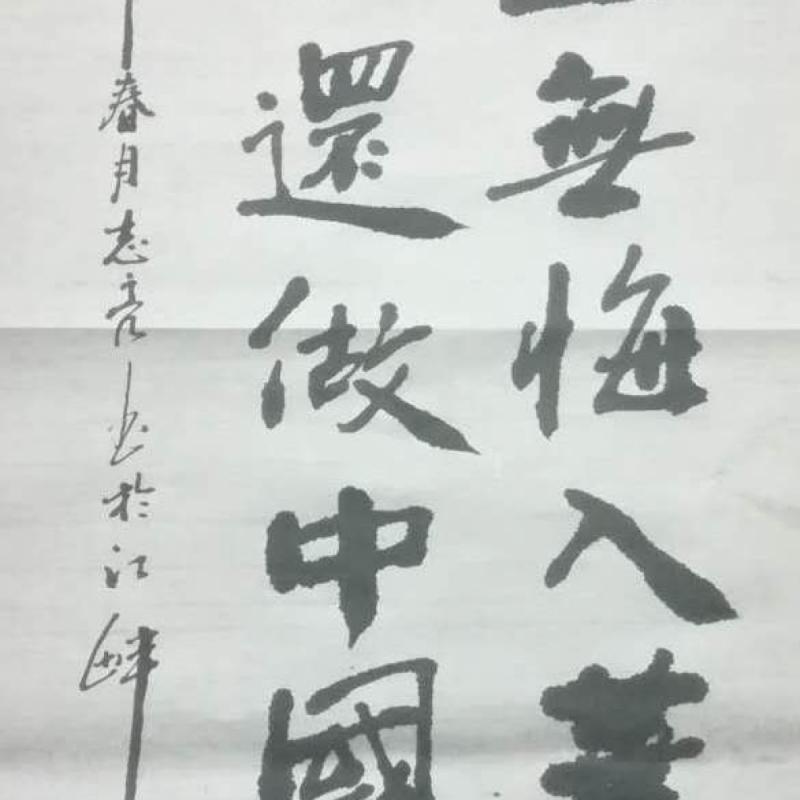 無悔入華
還做中國
春月志亮書於江畔